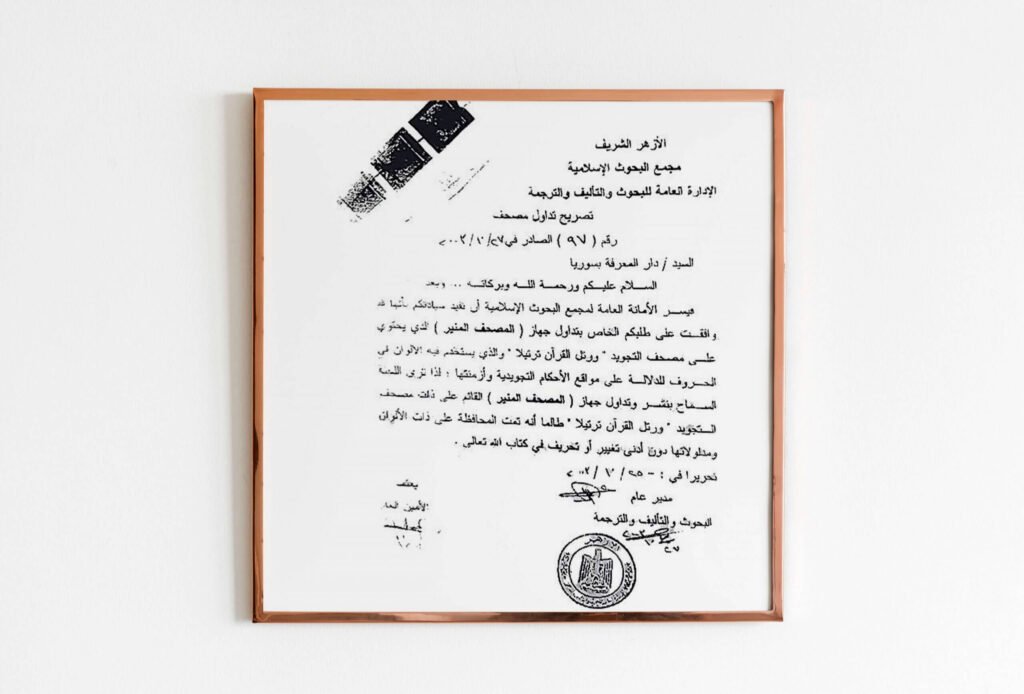 الأزهر الشريف
مجمع البحوث الإسلامية
الإدارة العامة للبحوث والتأليف والترجمة
تصريح تداول مصحف
رقم ( ٩٧ ) الصادر في ٢٧/ ١٠/ ٢٠٠٢
السيد / دار المعرفة بسوريا
الســلام عليــكم ورحمــة اللــه وبركاتــه .. وبعد
فيســر الأمانة العامة لمجمع البحوث الإسلامية أن نفيد سيادتكم بأنها قد
وافقــت على طلبكم الخاص بتداول جهاز ( المصحف المنير ) الذي يحتوي
علــى مصحف التجويد " ورتل القرآن ترتيلا " والذي يستخدم فيه الألوان في
الحــروف للدلالــة على مواقع الأحكام التجويدية وأزمنتها ؛ لذا ترى اللجنة
السمــاح بنشــر وتداول جهاز ( المصحف المنير ) القائم على ذات مصحف
التجــويد " ورتل القرآن ترتيلا " طالما أنه تمت المحافظة على ذات الألوان
ومدلولاتها دون أدنى تغيير أو تحريف في كتاب الله تعالى .
تحريرا في : - ٢٥ / ١٠ / ٢٠٠٢
مدير عام
البحوث والتأليف والترجمة
٢٧
يعتمد
الأمين العام
الأزهر